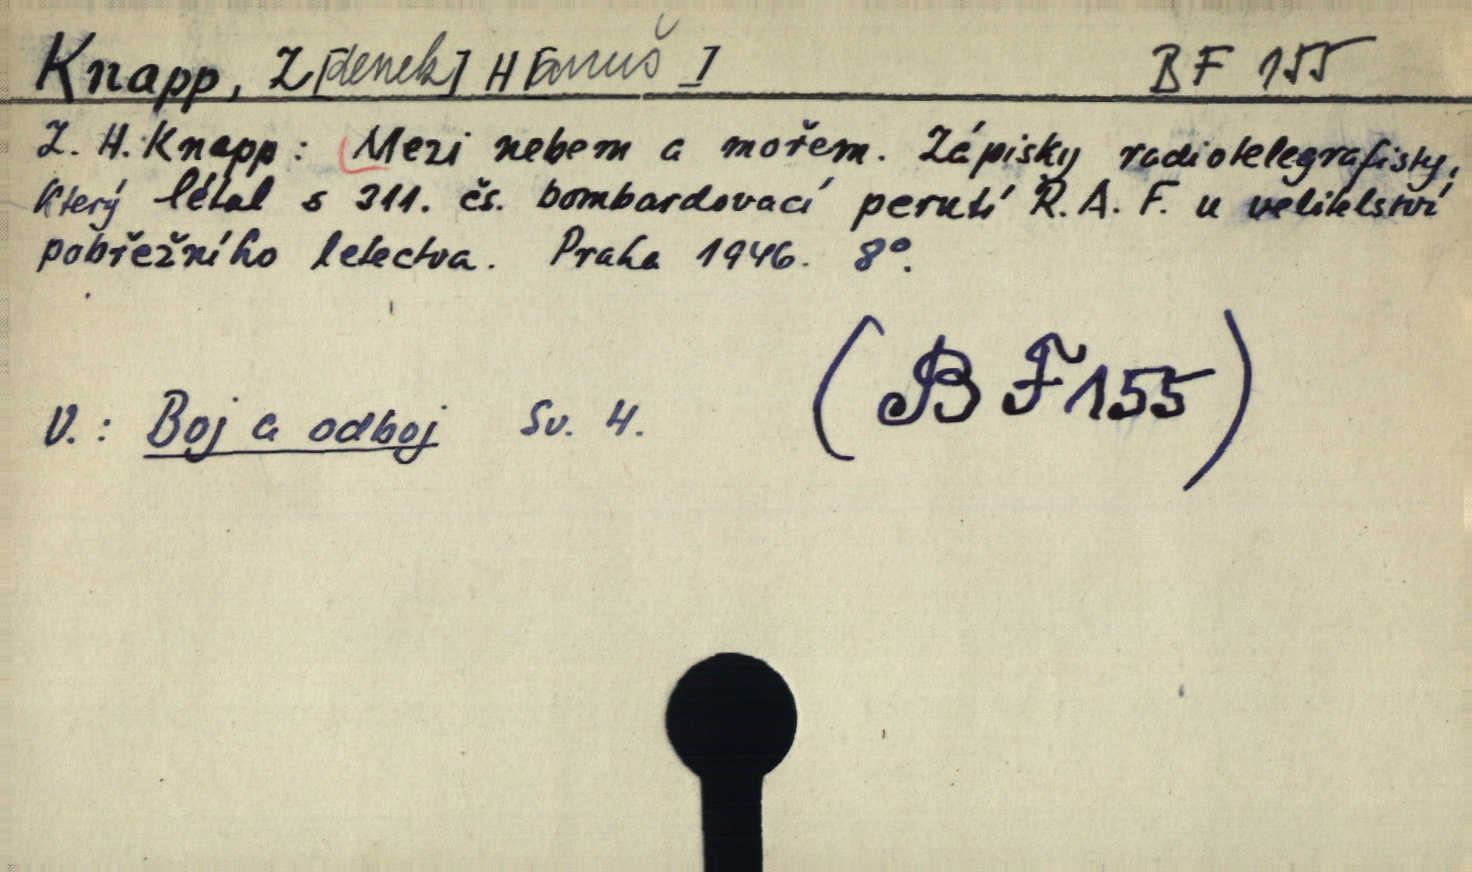 Knapp, Z[denek] H[anuš] BF 155
Z. H. Knapp: Mezi nebem a mořem. Zápisky radiotelegrafisty,
který létal s 311. čs. bombardovací perutí R. A. F. u velitelství
pobřežního letectva. Praha 1946. 8°.
(BF 155)
V.: Boj a odboj Sv. 4.